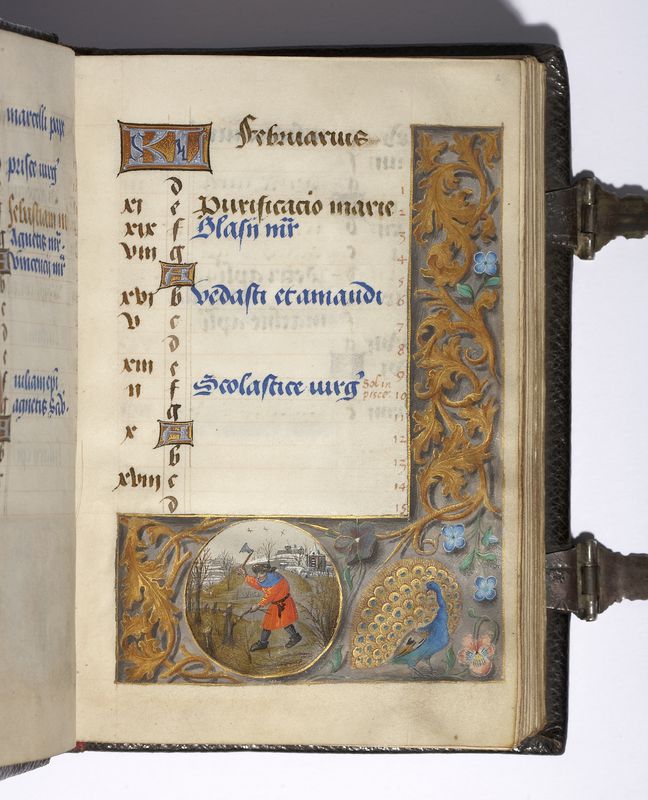 marcelli pape
prisce virg
Sebastiani m
g Agnetis mr
A Vincencij mr
b
c
d
e
f Juliani epi
g agnetis Scdo
A
b
c
KL Februarius
d 1
xi e Purificacio marie 2
xix f Blasij mr 3
viii g 4
A 5
xvi b Vedasti et amandi 6
v c 7
d 8
xiii e 9
ii f Scolastice virg Sol in pisce 10
g 11
x A 12
b 13
xviii c 14
d 15